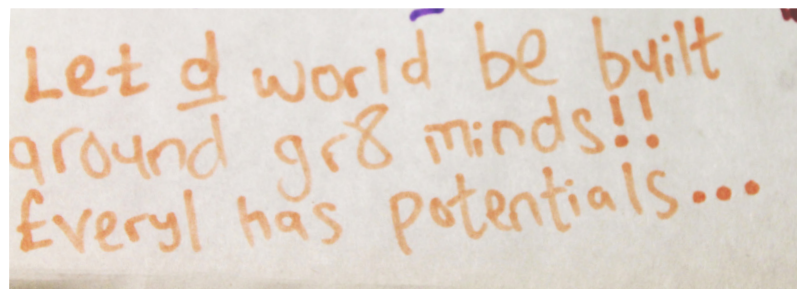 Let d world be built
around gr8 minds!!
Every1 has potentials...